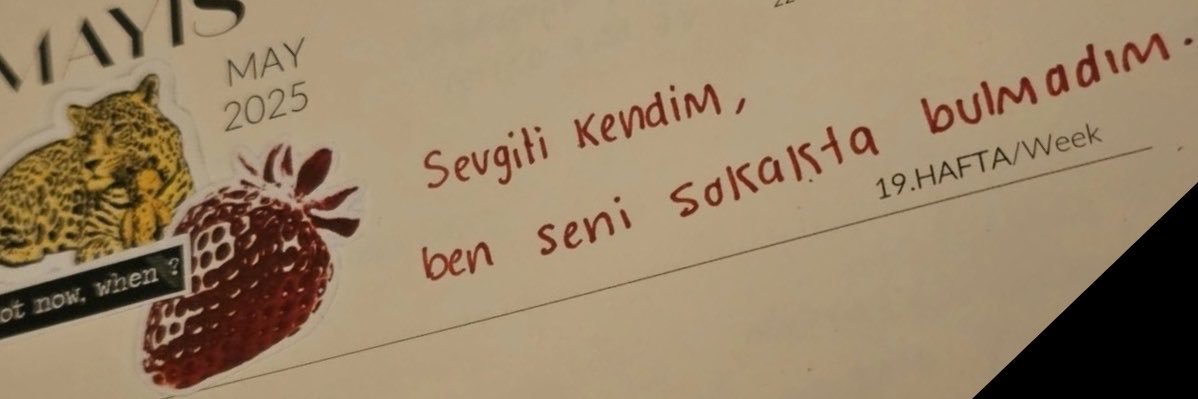 MAYIS
MAY
2025
Sevgili Kendim,
ben seni sokakta bulmadım.
19.HAFTA/Week
ot now, when ?